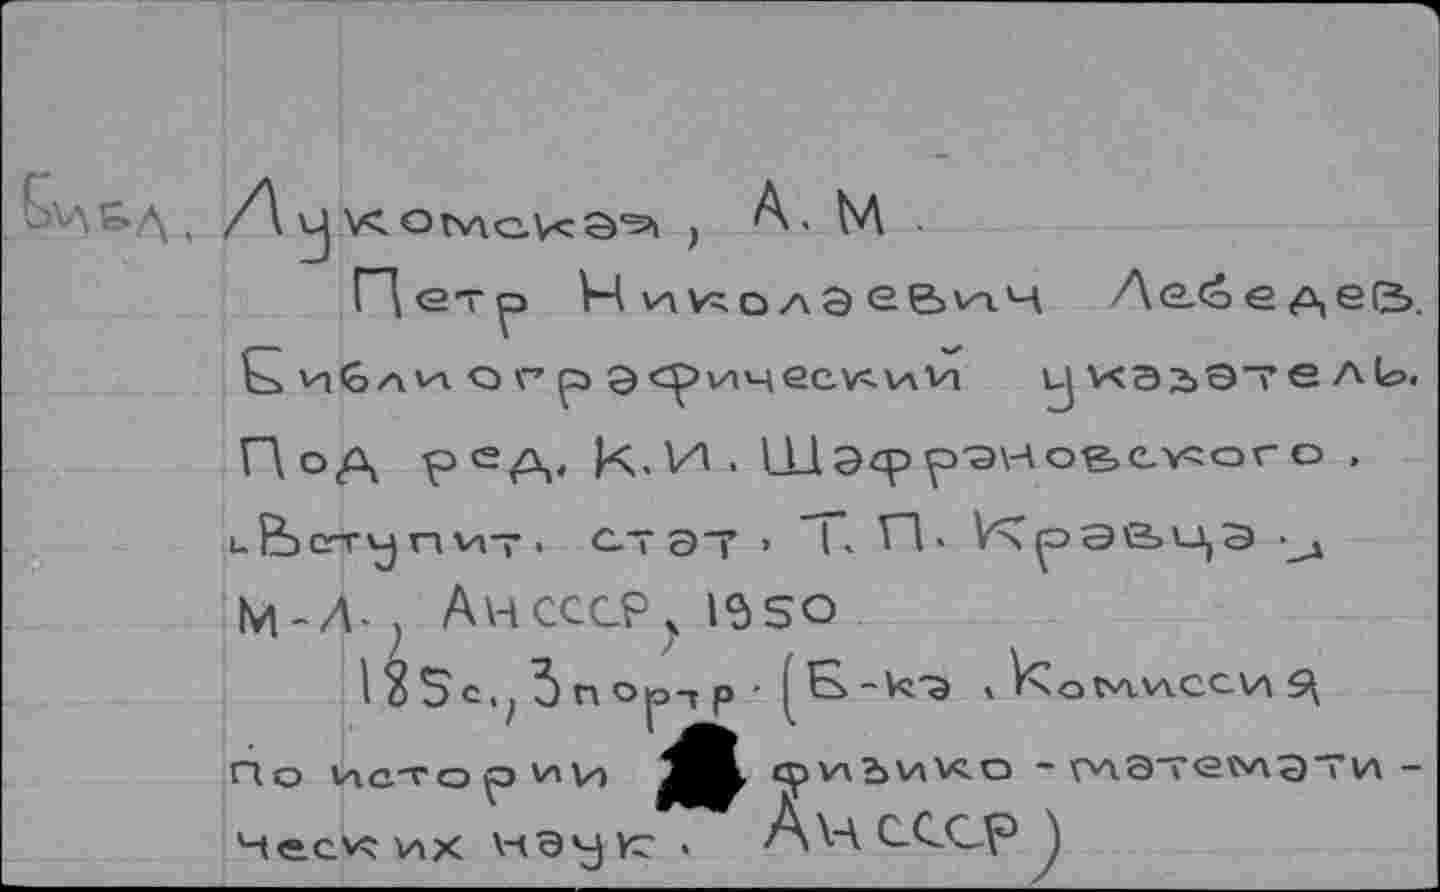 Библ. Лукомская, А. М.
Петр Николаевич Лебедев.
Библиографический указатель.
Под ред. К. И. Шафрановского.
Вступит. стат. Т. П. Кравца.
М-Л., АН СССР, 1950
185с., 3 портр. (Б-ка. Комиссия
по истории физико-математи-
ческих наук. АН СССР)